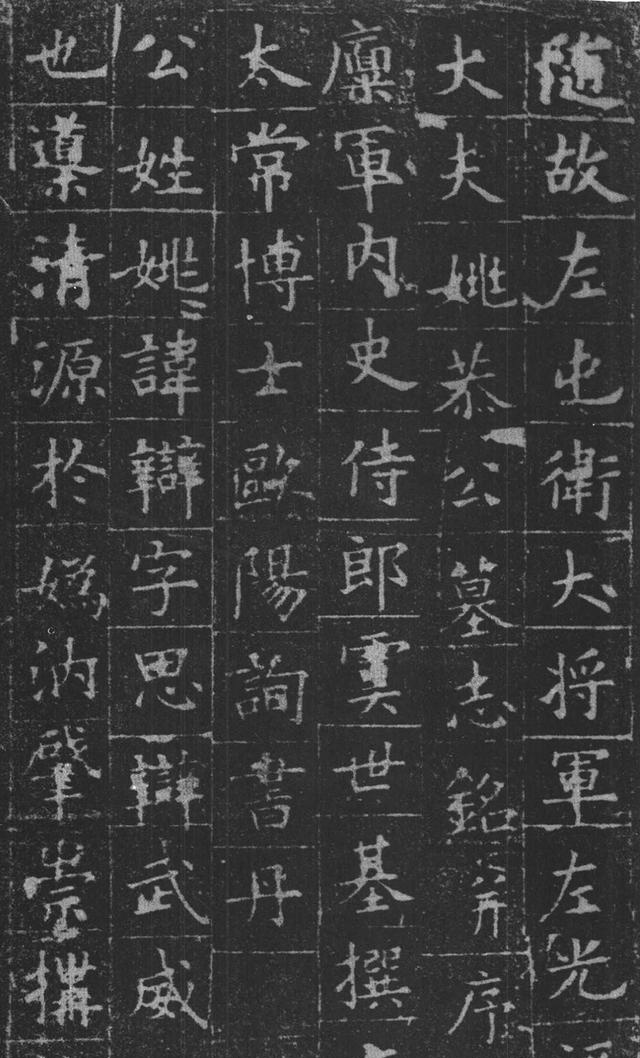 隨故左屯衛大將軍左光
大夫姚恭公墓志銘并序
稟軍內史侍郎虞世基撰
太常博士歐陽詢書丹
公姓姚諱辯字思辯武威
也導清源於媯汭肇崇構